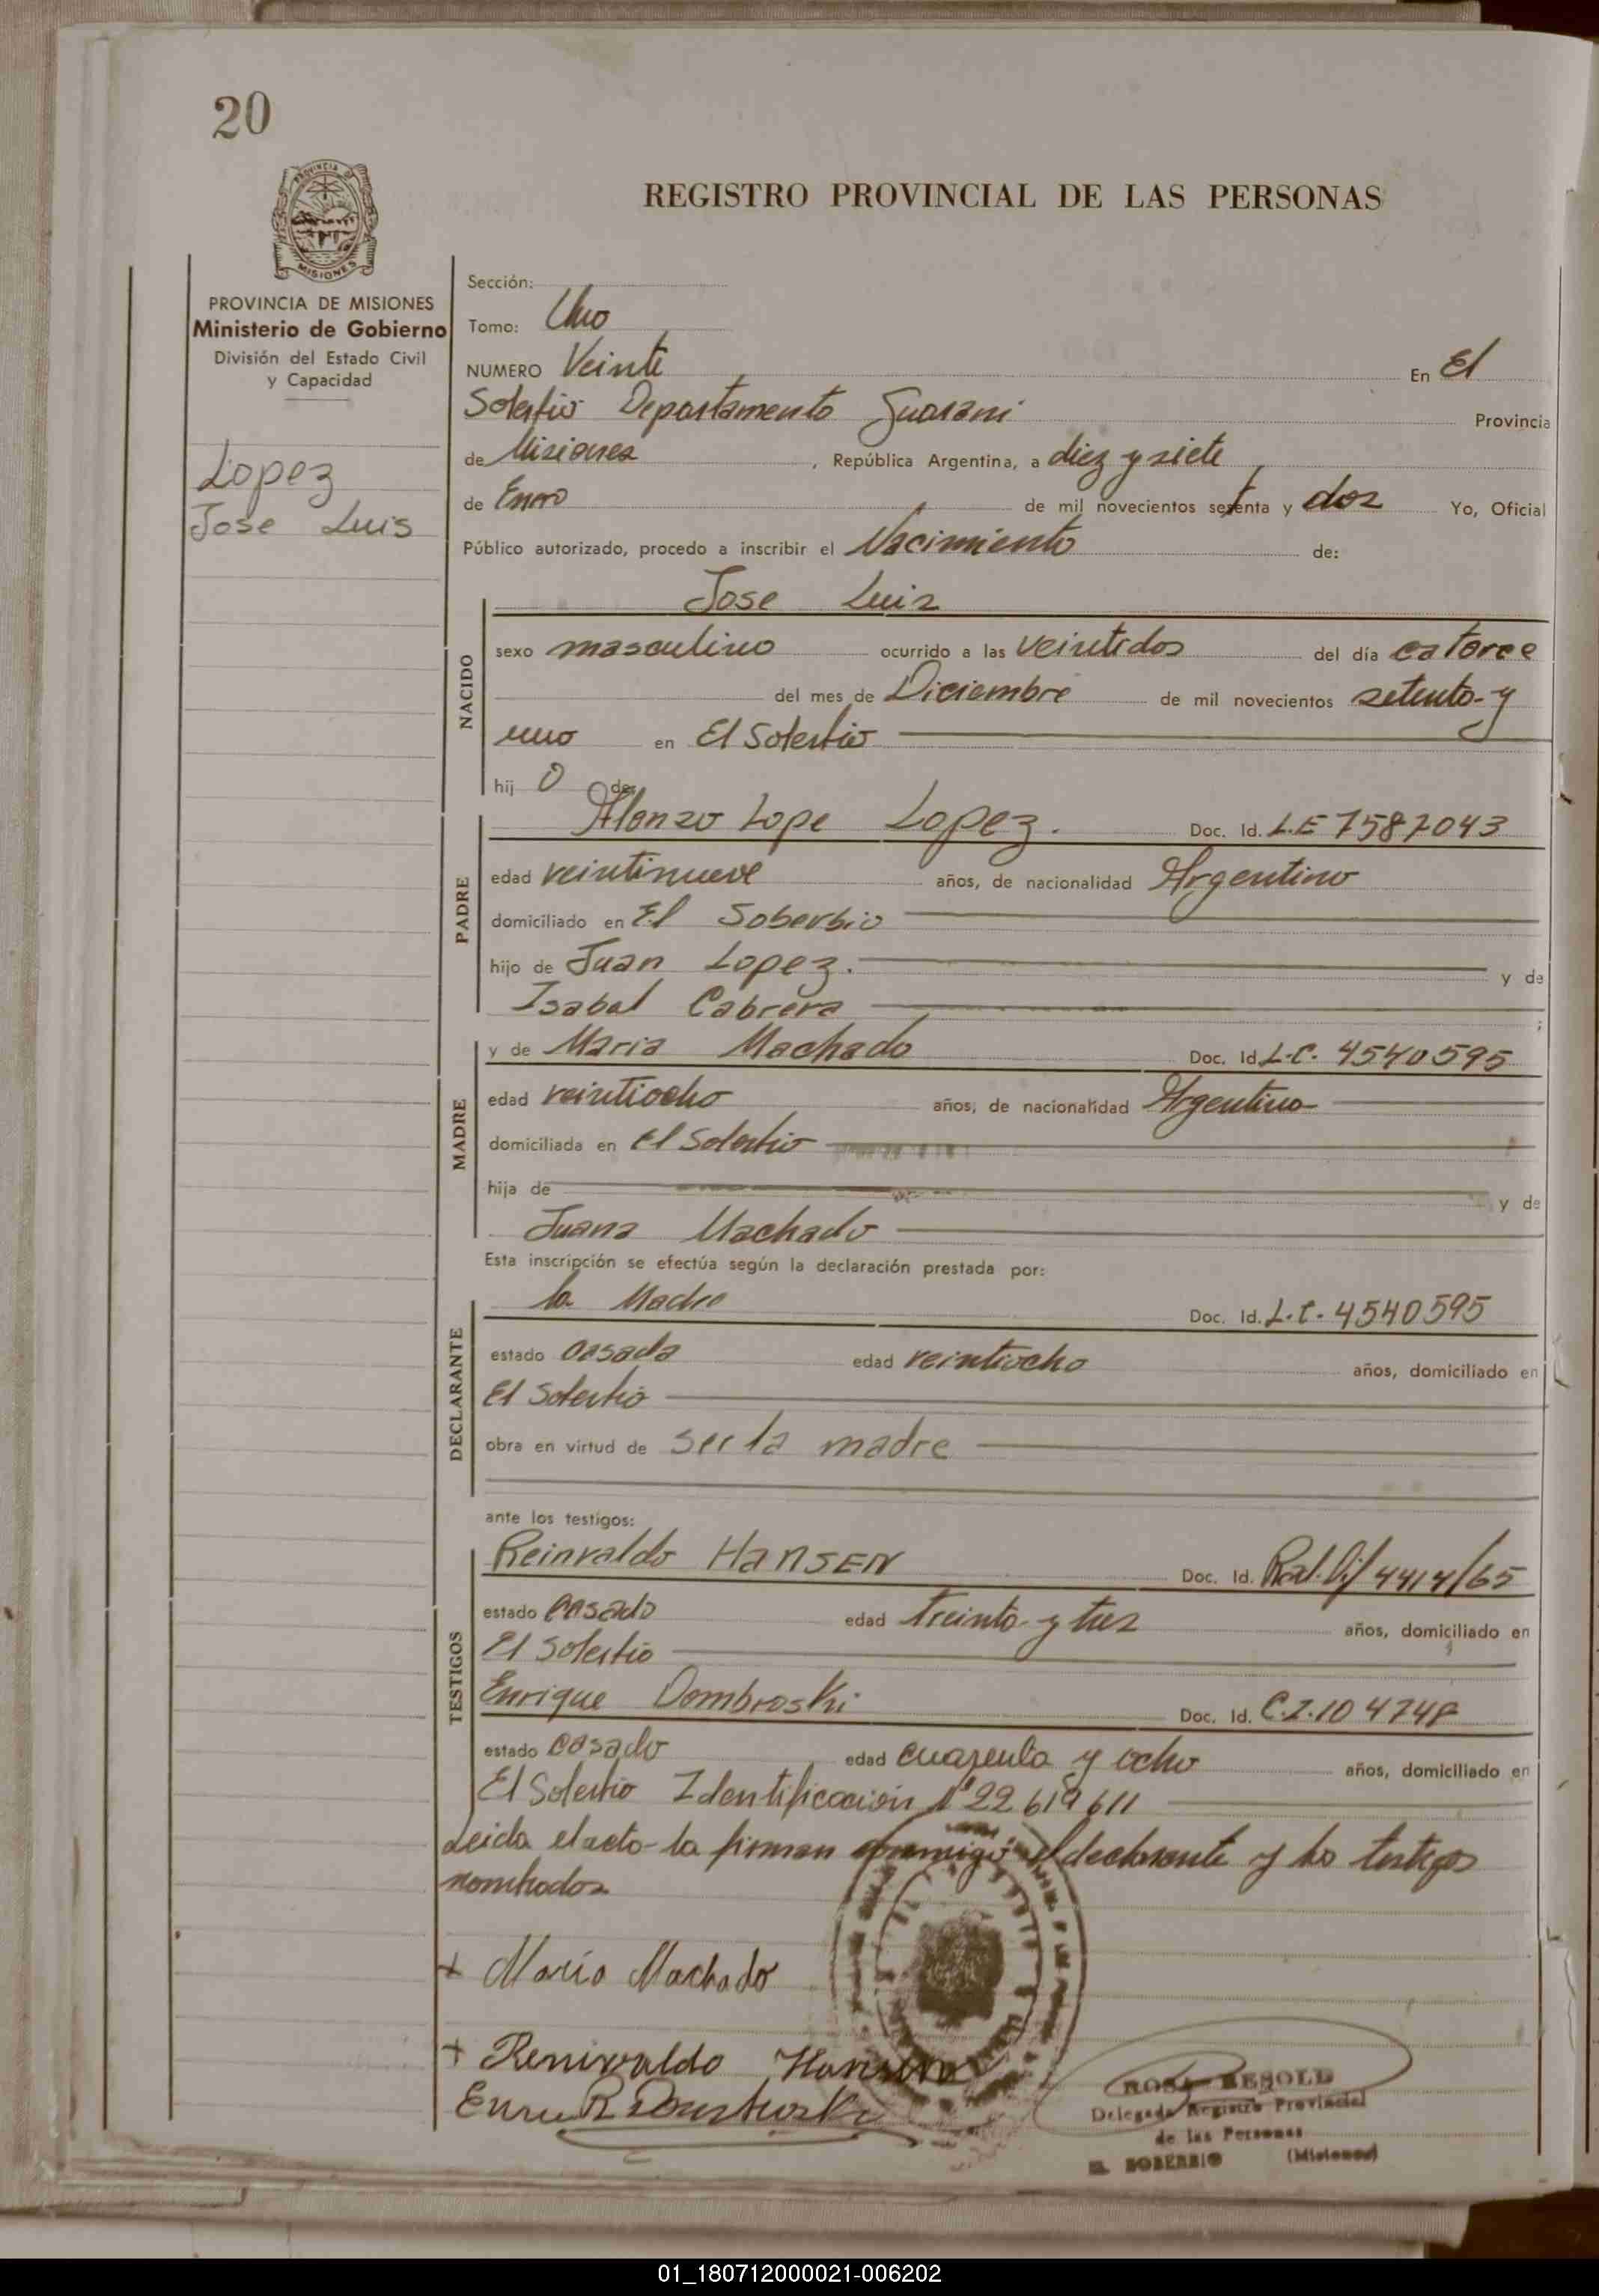 20
REGISTRO PROVINCIAL DE LAS PERSONAS
PROVINCIA DE MISIONES
MISIONES
PROVINCIA DE MISIONES
Ministerio de Gobierno
División del Estado Civil
y Capacidad
Lopez
Jose Luis
Sección:
Tomo: Uno
NUMERO Veinte En El
Soberbio Departamento Guarani Provincia
de Misiones, República Argentina, a diez y siete
de Enero de mil novecientos setenta y dos Yo, Oficial
Público autorizado, procedo a inscribir el Nacimiento de:
NACIDO
Jose Luis
sexo masculino ocurrido a las veintidos del día catorce
del mes de Diciembre de mil novecientos setenta y
uno en El Soberbio
hij o de
PADRE
Alonzo Lope Lopez. Doc. Id. L.E 7587043
edad veintinueve años, de nacionalidad Argentino
domiciliado en El Soberbio
hijo de Juan Lopez. y de
Isabel Cabrera ;
MADRE
y de Maria Machado Doc. Id. L.C. 4540595
edad veintiocho años, de nacionalidad Argentina
domiciliada en El Soberbio
hija de y de
Juana Machado
Esta inscripción se efectúa según la declaración prestada por:
DECLARANTE
la Madre Doc. Id. L.C. 4540595
estado casada edad veintiocho años, domiciliado en
El Soberbio
obra en virtud de ser la madre
ante los testigos:
TESTIGOS
Reinvaldo HANSEN Doc. Id. 4414/65
estado casado edad treinta y tres años, domiciliado en
El Soberbio
Enrique Dombroski Doc. Id. C.I. 104748
estado casado edad cuarenta y ocho años, domiciliado en
El Soberbio Identificación Nº 22 619 611
Leida el acta la firman conmigo el declarante y los testigos
nombrados
+ Maria Machado
+ Renivaldo Hansen
ROSA BESOLD
Delegada Registro Provincial
de las Personas
EL SOBERBIO (Misiones)
01_180712000021-006202